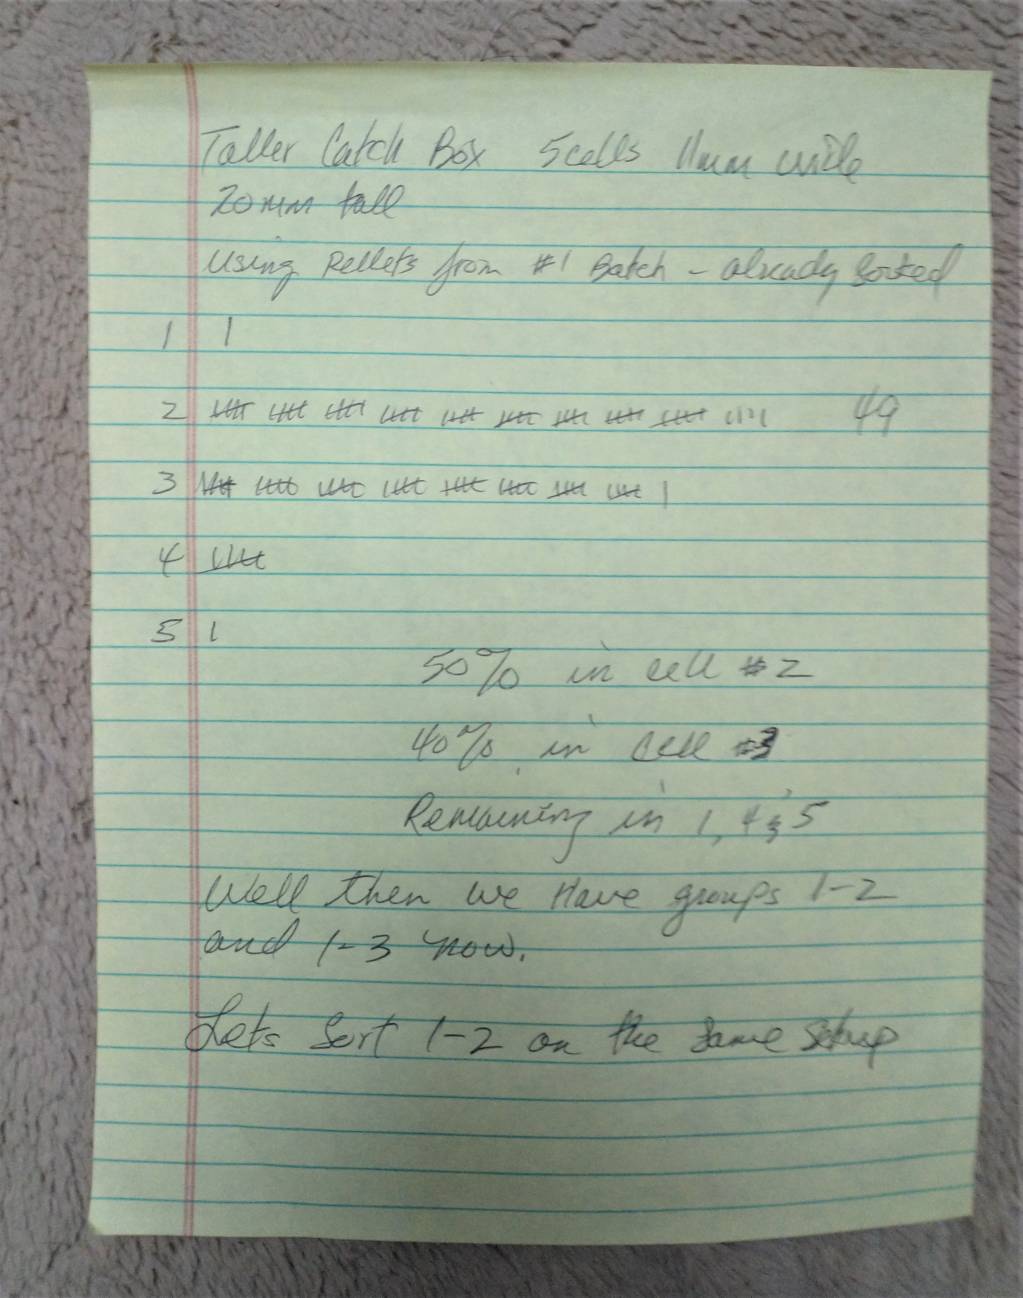 Taller Catch Box 5cells 11mm wide
20mm tall
Using Pellets from #1 Batch - already Sorted
1 1
2 𝍸 𝍸 𝍸 𝍸 𝍸 𝍸 𝍸 𝍸 𝍸 |||| 49
3 𝍸 𝍸 𝍸 𝍸 𝍸 𝍸 𝍸 𝍸 |
4 𝍸
5 1
50% in cell #2
40% in cell #3
Remaining in 1, 4 & 5
Well then we Have groups 1-2
and 1-3 now.
Lets Sort 1-2 on the Same Setup